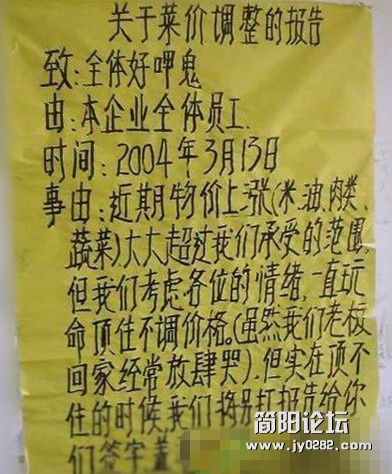 关于菜价调整的报告
致:全体好呷鬼
由:本企业全体员工.
时间:2004年3月13日
事由:近期物价上涨(米、油、肉类、
蔬菜)大大超过我们承受的范围,
但我们考虑各位的情绪,一直玩
命顶住不调价格。(虽然我们老板
回家经常放肆哭).但实在顶不
住的时候,我们将另打报告给你
们签字盖
简阳论坛
www.jy0282.com